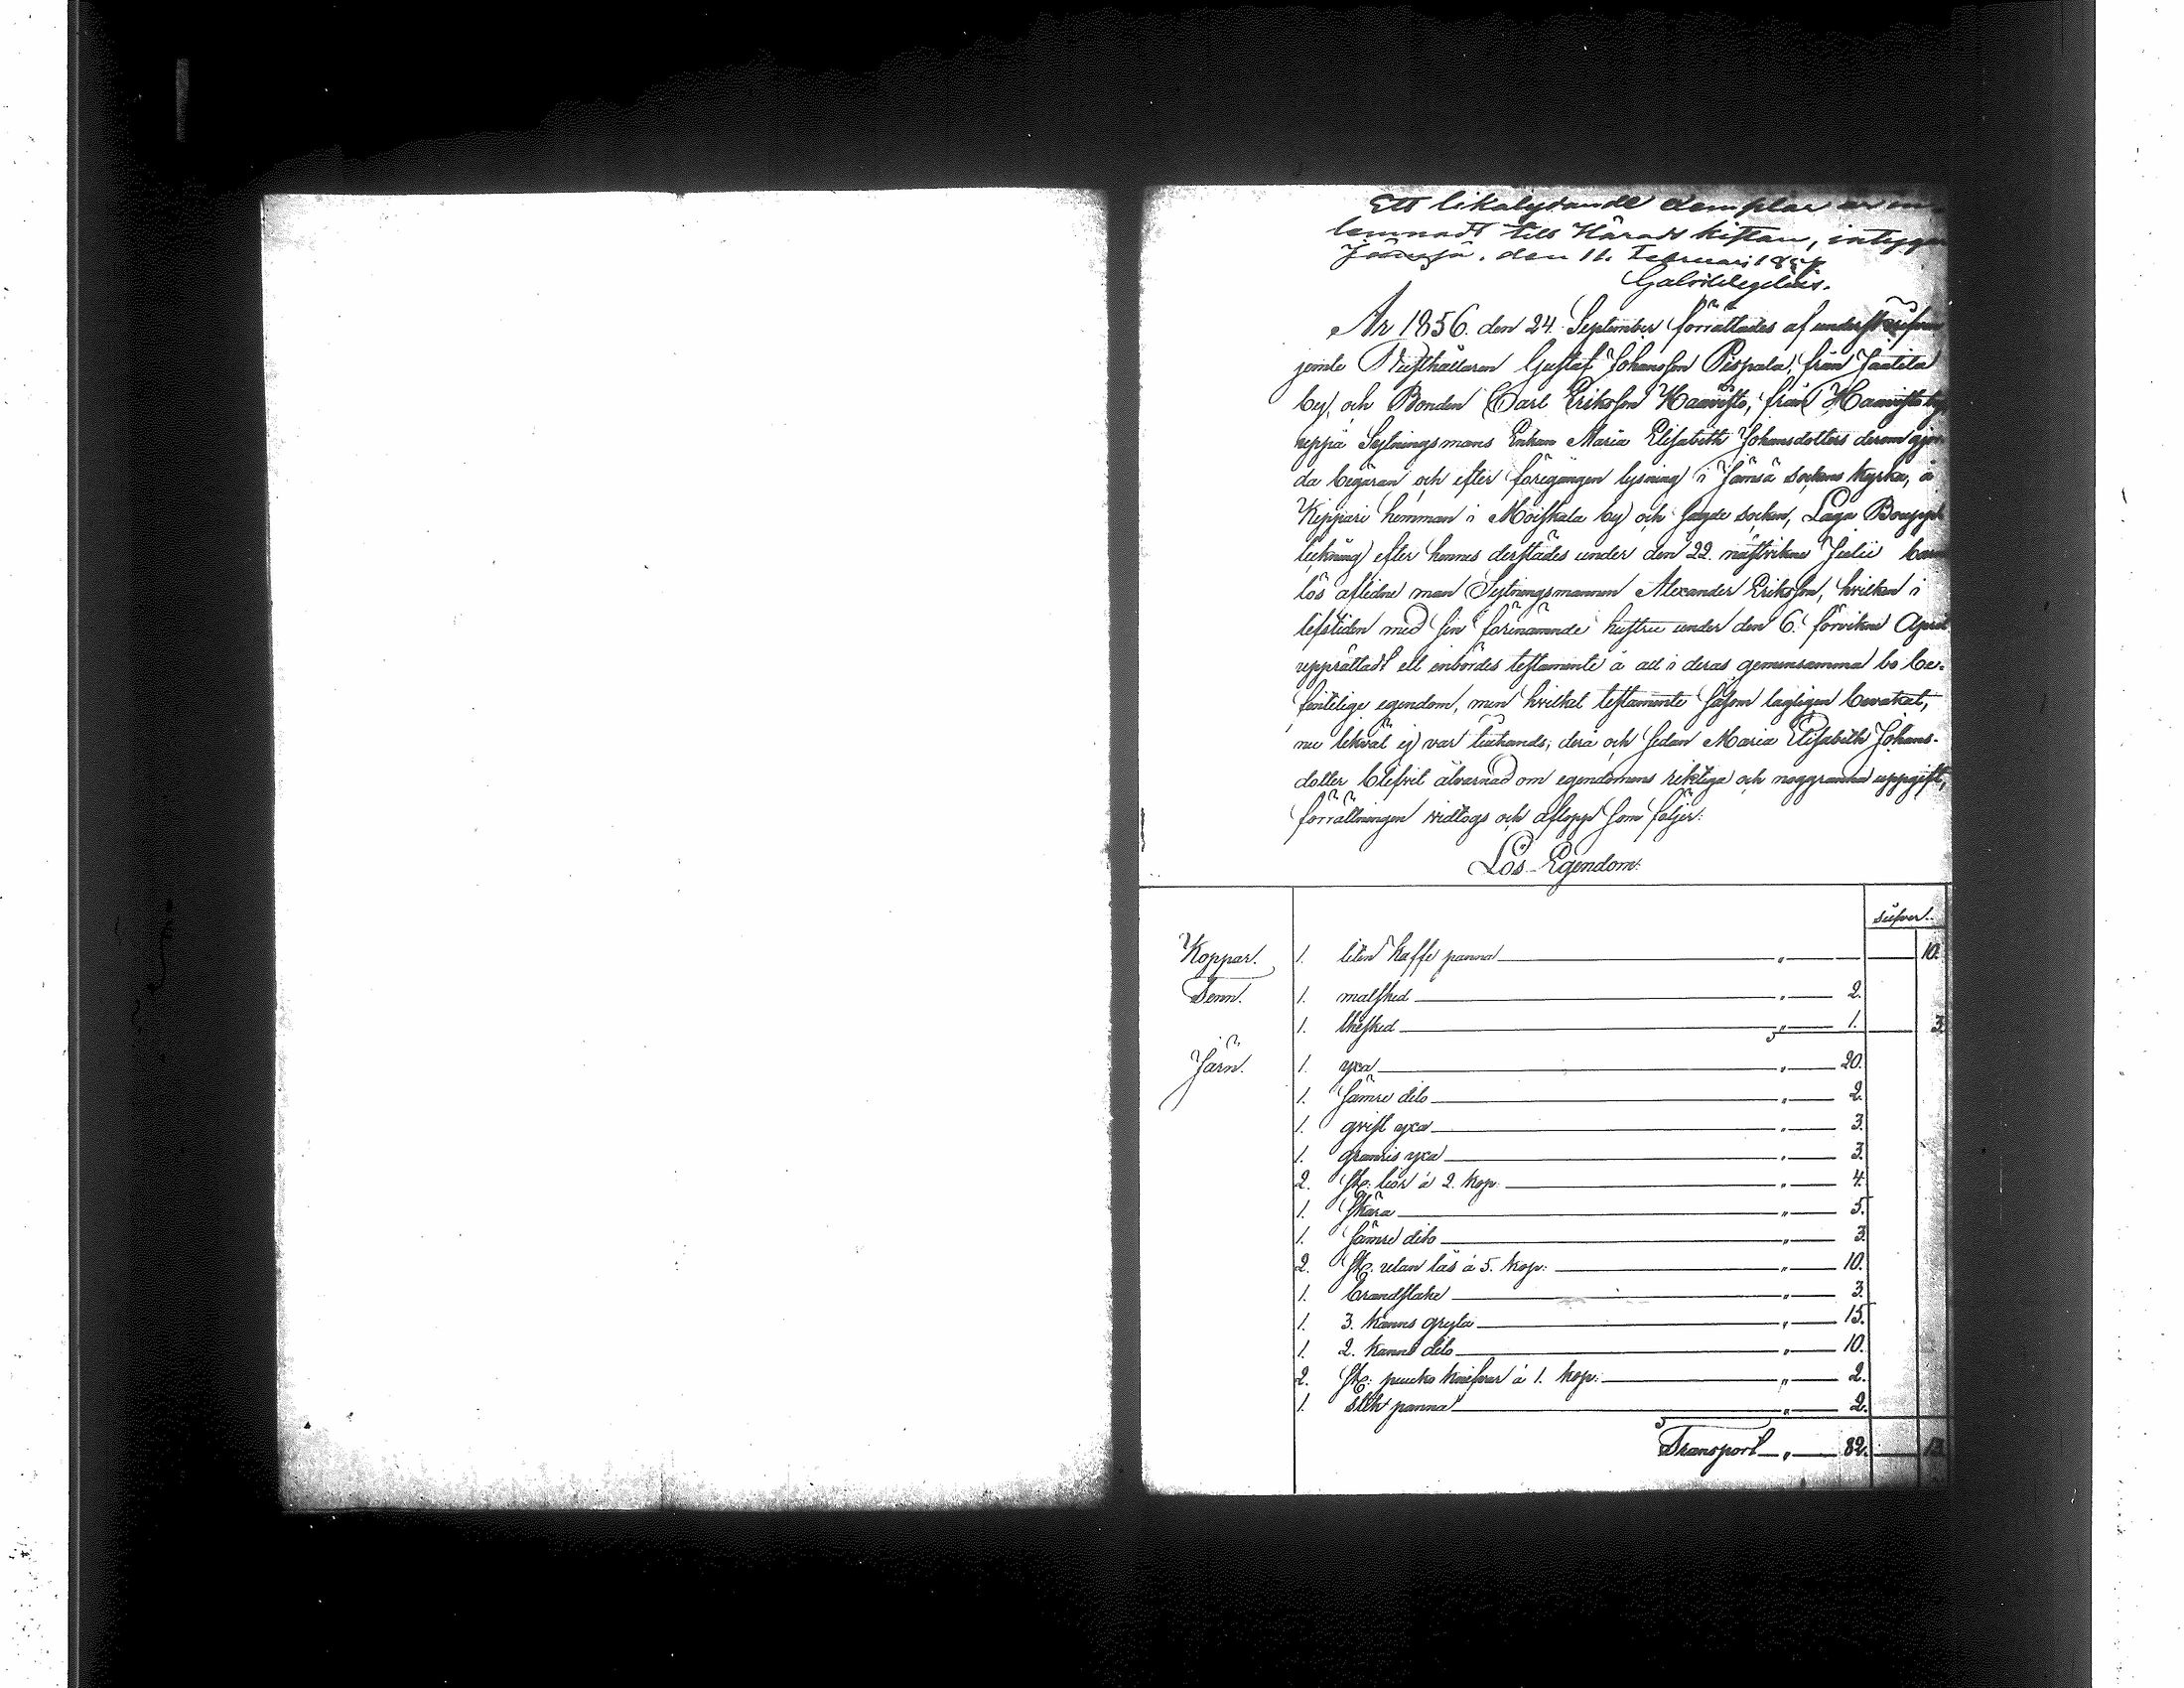 Ett likalydande Exemplar är in-
lemnadt till Härads kistan, intygar
Jämsä, den 11. Februari 1857
År 1856. den 24. September förrättades af underskrifven
jemte Rusthållaren Gustaf Johansson Pispala, från Jaatila
by, och Bonden Carl Eriksson Haavisto, från Haavisto by,
uppå Sytningsmans Enkan Maria Elisabeth Johansdotters derom gjor-
da begäran och efter föregången lysning i Jämsä sockens kyrka, å
Keppari hemman i Moiskala by och sagde socken, Laga Bouppt
teckning efter hennes derstädes under den 22. nästvikne Julii barn
lös aflidne man Sytningsmannen Alexander Eriksson, hvilken i
lifstiden med sin förenämnde hustru under den 6. förvikne April
upprättadt ett inbördes testamente å all i deras gemensamma bo be-
fintelige egendom, men hvilket testamente såsom lagligen bevakat,
nu likväl ej var tillhands; derå och sedan Maria Elisabeth Johans-
dotter blifvit älvarnad om egendomens riktiga och noggranna uppgift,
förrättningen vidtogs och aflopp som följer:
Lös Egendom:
silfver.
Koppar. 1. liten kaffe panna " 10.
Tenn. 1. matsked " 2.
1. thesked " 1. 3.
Järn. 1. yxa " 20.
1. sämre dito " 2.
1. qvist yxa " 3.
1. granris yxa " 3.
2. st: liar à 2. kop: " 4.
1. skära " 5.
1. sämre dito " 3.
2. st: utan lås à 5. kop: " 10.
1. brandstake " 3.
1. 3. kanns gryta " 15.
1. 2. kanns dito " 10.
2. st: puuko knifvar à 1. kop: " 2.
1. stek panna " 2.
Transport " 82. 13.